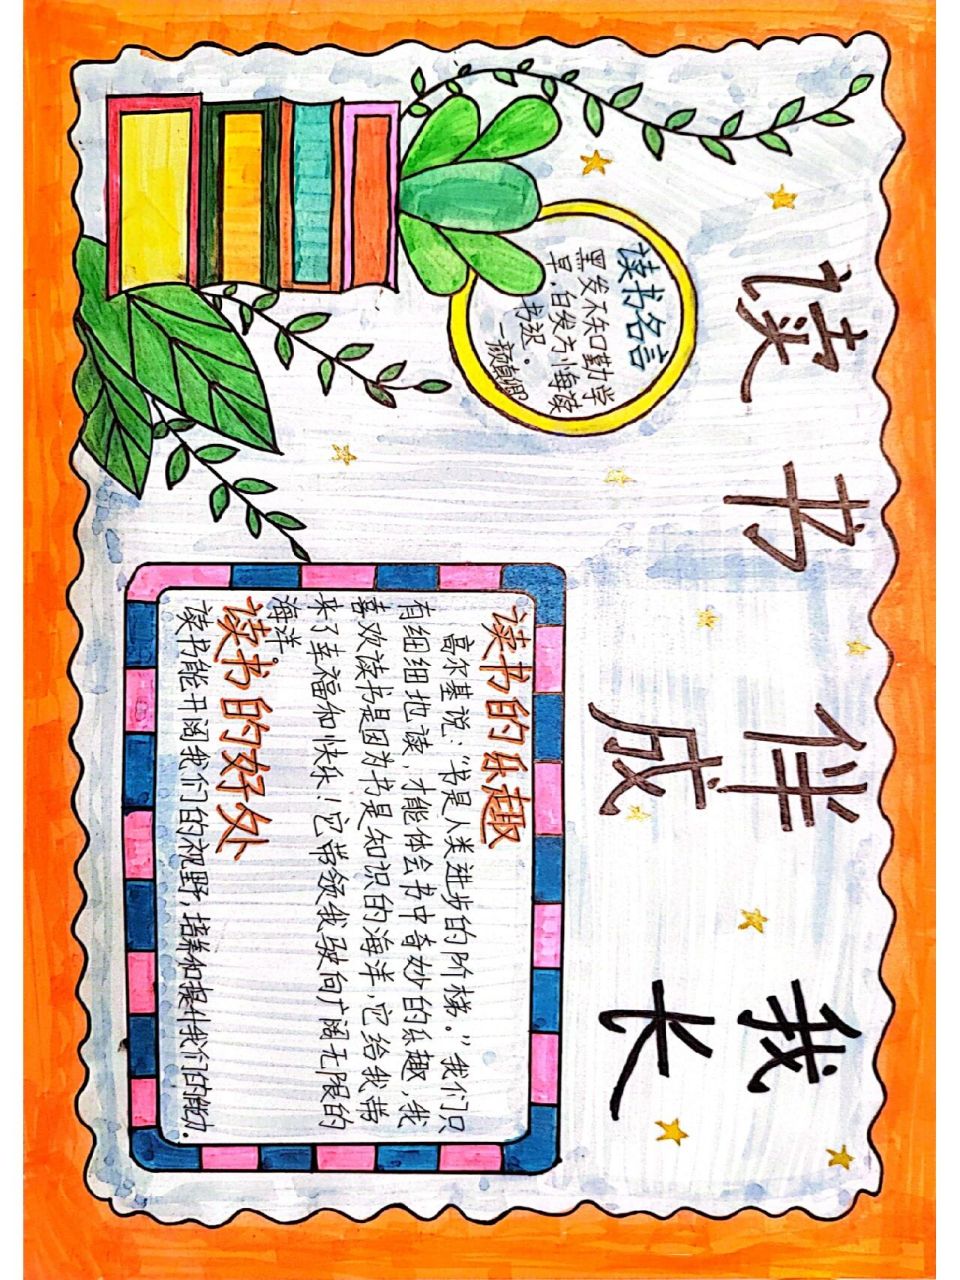 读书伴我
成长
读书名言
黑发不知勤学
早,白发方悔读
书迟。
—颜真卿
读书的乐趣
高尔基说:“书是人类进步的阶梯。”我们只
有细细地读,才能体会书中奇妙的乐趣,我
喜欢读书是因为书是知识的海洋,它给我带
来了幸福和快乐!它带领我驶向广阔无限的
海洋.
读书的好处
读书能开阔我们的视野,培养和提升我们的能力.